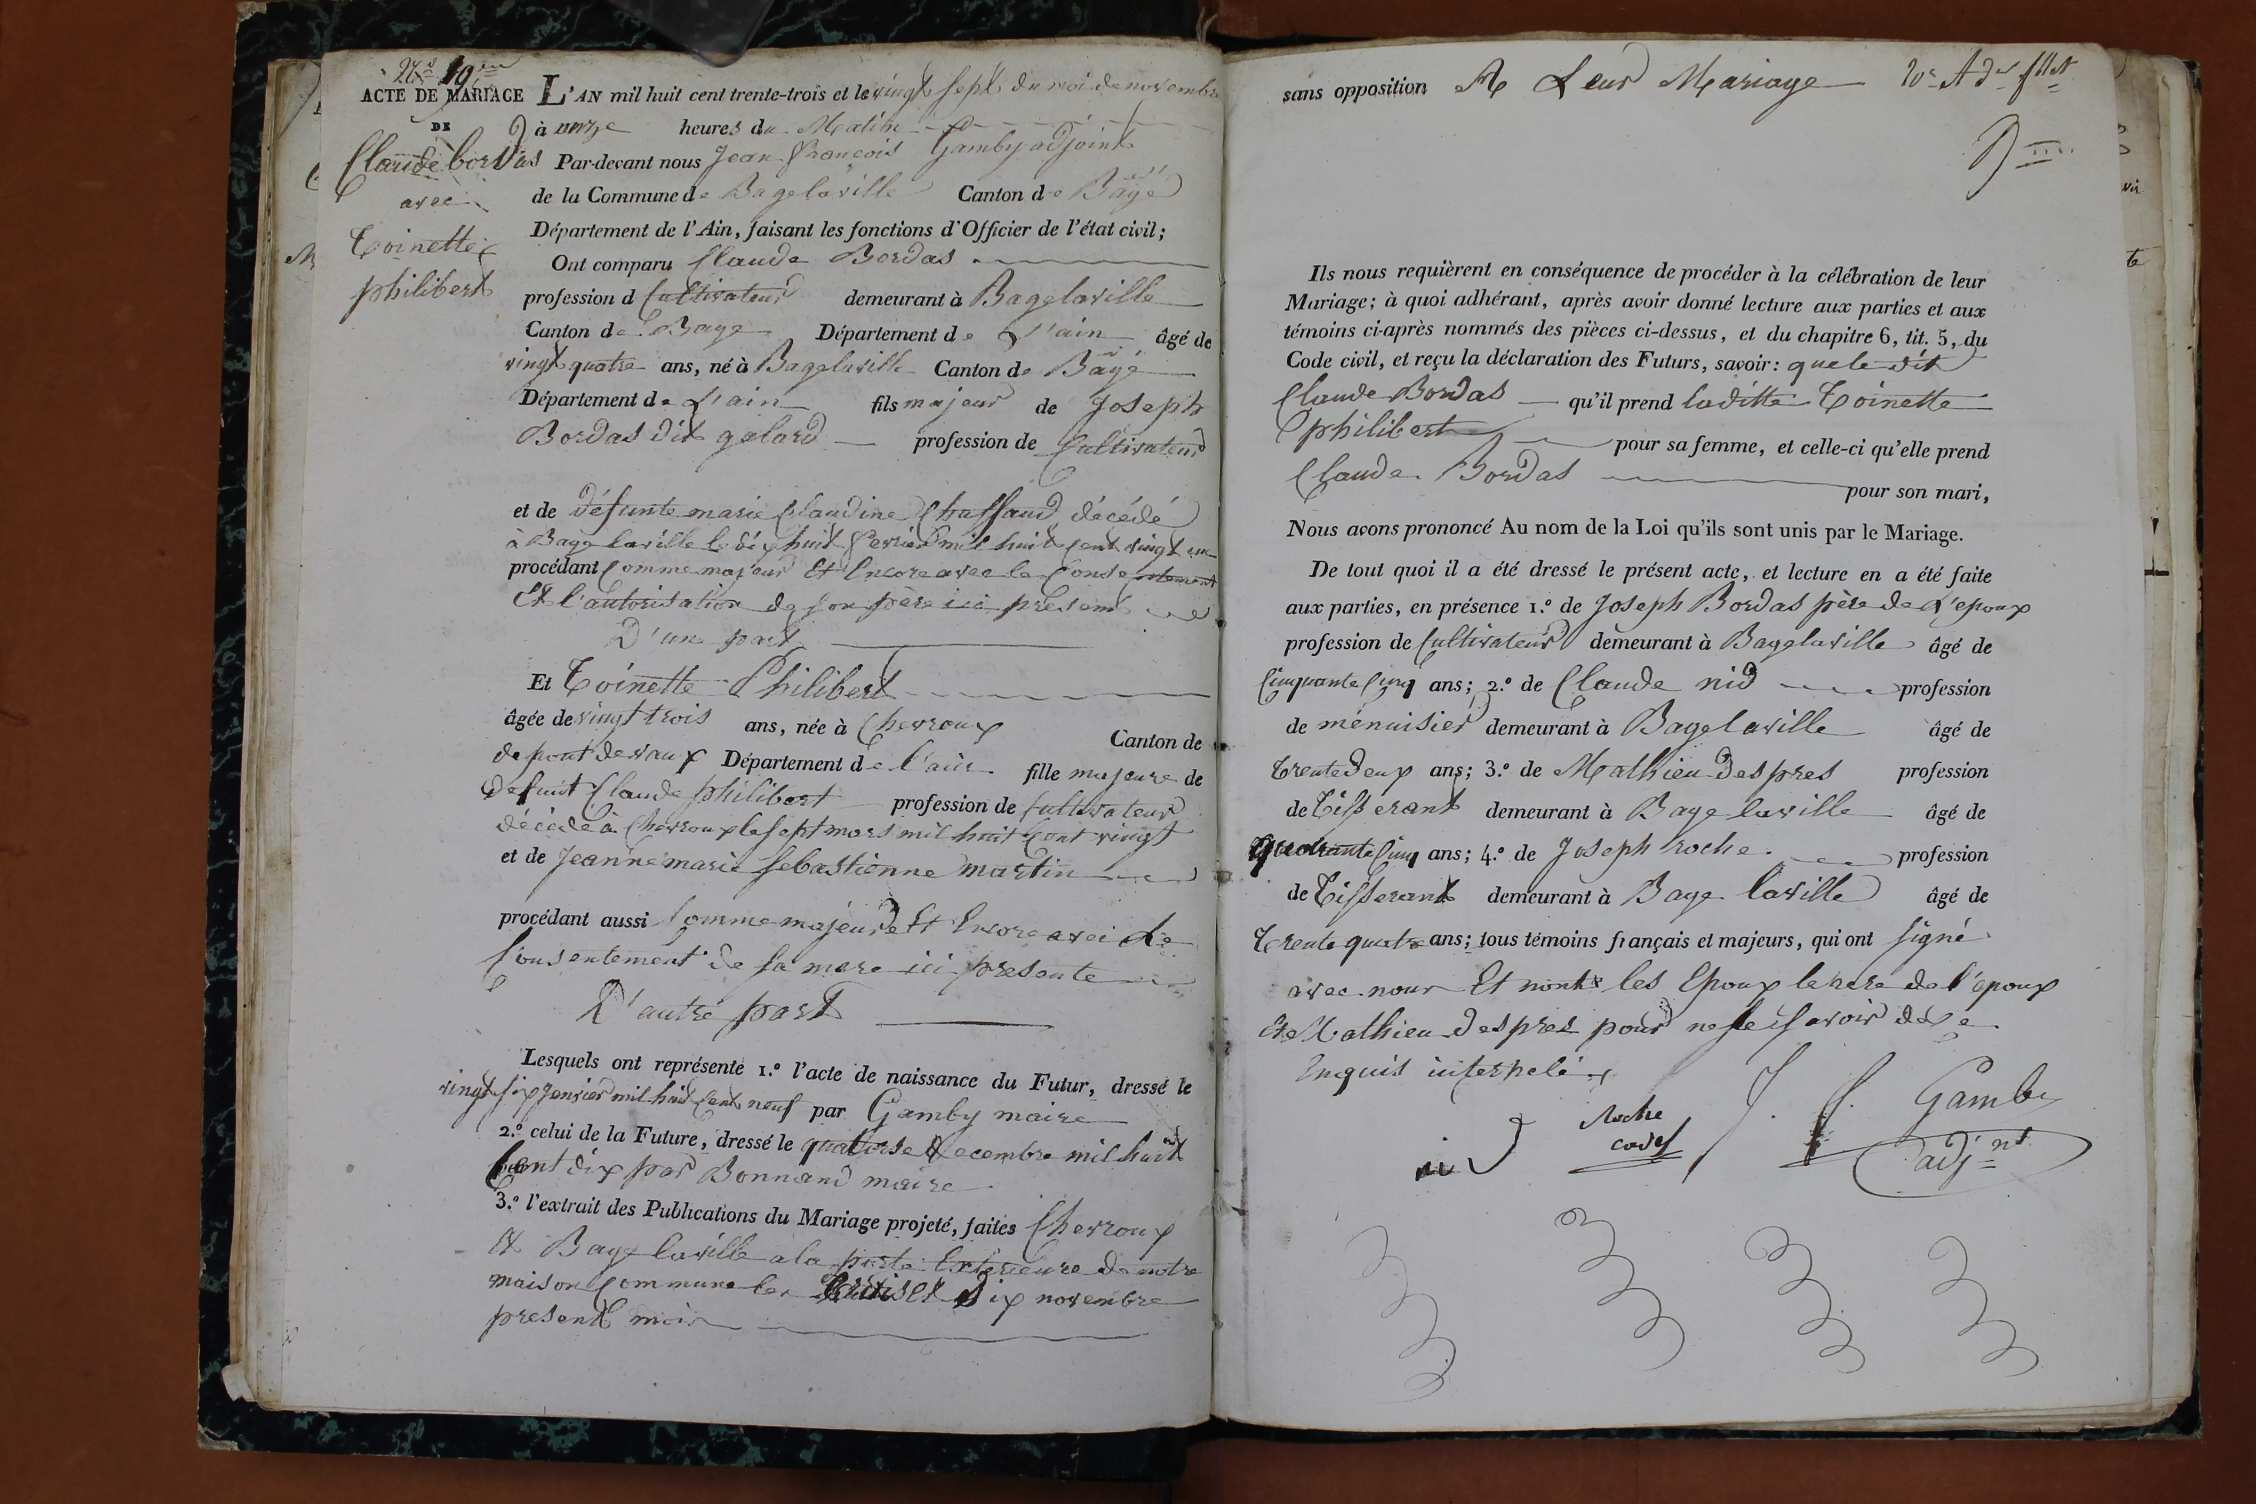 ACTE DE MARIAGE
DE
Claude bordas
avec
Toinette
philibert
L'AN mil huit cent trente-trois et le vingt sept du moi de novembre
à onze heures du Matin
Par-devant nous Jean françois Gamby adjoint
de la Commune de Bagelaville Canton de Bagé
Département de l'Ain, faisant les fonctions d'Officier de l'état civil;
Ont comparu Claude Bordas
profession d Cultivateur demeurant à Bagelaville
Canton de Bage Département de L'ain âgé de
vingt quatre ans, né à Bagelaville Canton de Bagé
Département de L'ain fils majeur de Joseph
Bordas dit gelard profession de Cultivateur
et de défunte marie Claudine Chaffaud décédé
à Bage laville le dix huit fevrier mil huit cent vingt un
procédant Comme majeur Et Encore avec le Consentement
Et l'autorisation de son père ici present
D'une part
Et Toinette Philibert
âgée de vingt trois ans, née à Chevroux Canton de
de pont de vaux Département de l'ain fille majeure de
defunt Claude philibert profession de Cultivateur
décédé à Chevroux le sept mars mil huit Cent vingt
et de Jeanne marie sebastienne martin
procédant aussi Comme majeure Et Encore avec Le
Consentement de sa mere ici presente
D'autre part
Lesquels ont représenté 1.º l'acte de naissance du Futur, dressé le
vingt six Jenvier mil huit Cent neuf par Gamby maire
2.º celui de la Future, dressé le quatorse decembre mil huit
Cent dix par Bonnand maire
3.º l'extrait des Publications du Mariage projeté, faites Chevroux
Et Bage laville a la porte Exterieure de notre
maison Commune les trois et dix novembre
present mois
sans opposition A Leur Mariage
Ils nous requièrent en conséquence de procéder à la célébration de leur
Mariage; à quoi adhérant, après avoir donné lecture aux parties et aux
témoins ci-après nommés des pièces ci-dessus, et du chapitre 6, tit. 5, du
Code civil, et reçu la déclaration des Futurs, savoir: que le dit
Claude Bordas qu'il prend laditte Toinette
philibert pour sa femme, et celle-ci qu'elle prend
Claude Bordas pour son mari,
Nous avons prononcé Au nom de la Loi qu'ils sont unis par le Mariage.
De tout quoi il a été dressé le présent acte, et lecture en a été faite
aux parties, en présence 1.º de Joseph Bordas père de L'epoux
profession de Cultivateur demeurant à Bagelaville âgé de
Cinquante Cinq ans; 2.º de Claude nid profession
de ménuisier demeurant à Bagelaville âgé de
trente deux ans; 3.º de Mathieu Despres profession
de Tisserant demeurant à Bage laville âgé de
quarante Cinq ans; 4.º de Joseph roche profession
de Tisserant demeurant à Bage laville âgé de
trente quatre ans; tous témoins français et majeurs, qui ont signé
avec nous Et non les Epoux le pere de l'époux
Et Mathieu Despres pour ne le savoir de ce
Enquis interpelé
nid
Roche
cadet
J. f. Gamby
adjnt